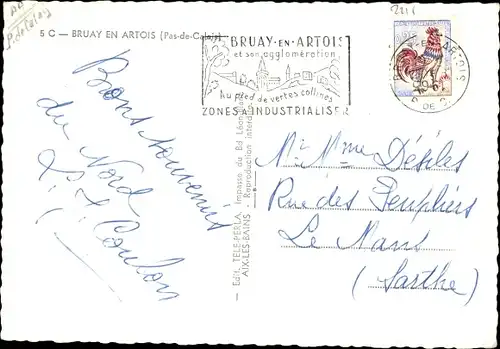 5 C — BRUAY EN ARTOIS (Pas-de-Calais)
BRUAY-EN-ARTOIS
et son agglomération
Au pied de vertes collines
ZONES A INDUSTRIALISER
Bons souvenirs
du Nord
Coulon
Edit. TELE-PERLA, Impasse du Bd
AIX-LES-BAINS - Reproduction Interdite
M. Mme Désiles
Rue des Peupliers
Le Mans
(Sarthe)